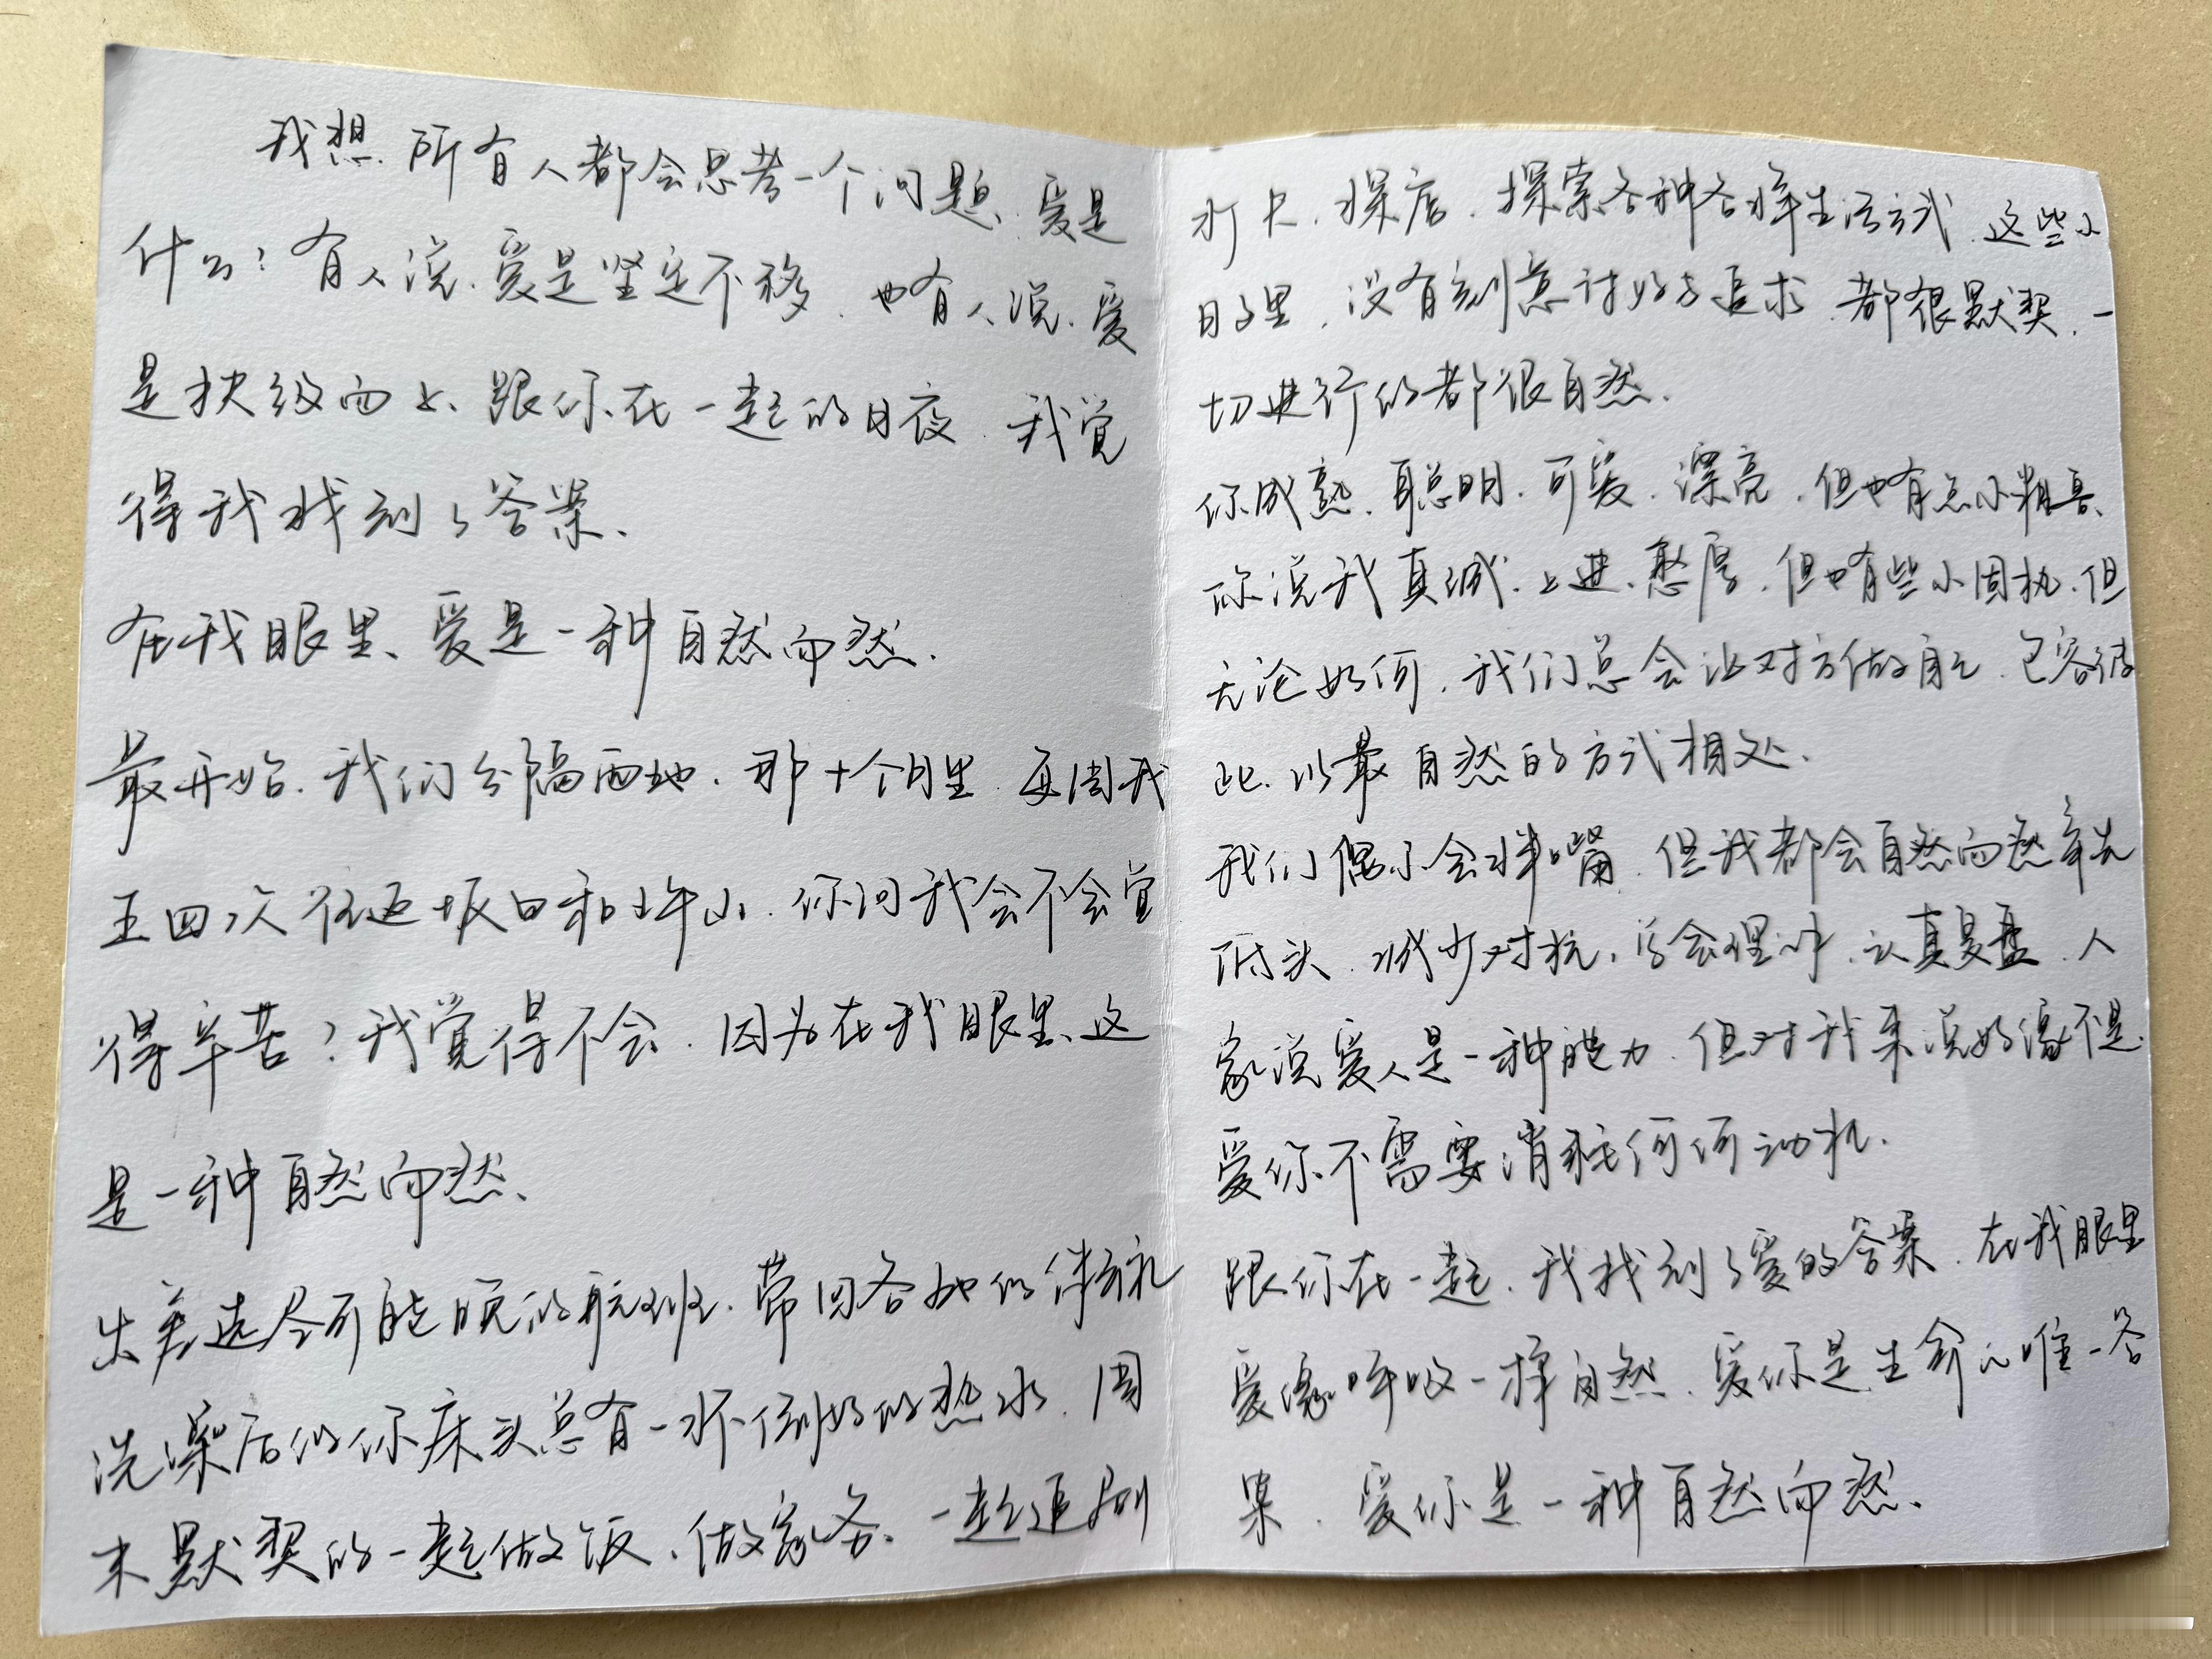 我想、所有人都会思考一个问题、爱是
什么?有人说、爱是坚定不移、也有人说、爱
是拾级而上、跟你在一起的日夜、我觉
得我找到了答案、
在我眼里、爱是一种自然而然.
最开始、我们分隔两地、那十个月里、每周我
三四次往返坂口和坪山、你问我会不会觉
得辛苦?我觉得不会、因为在我眼里、这
是一种自然而然、
出差选尽可能晚的航班、带回各地的伴手礼
洗澡后的你床头总有一杯倒好的热水、周
末默契的一起做饭、做家务、一起追剧
打卡、探店、探索各种各样生活方式、这些小
日子里、没有刻意讨好与追求、都很默契、一
切进行的都很自然.
你成熟、聪明、可爱、漂亮、但也有点小粗鲁、
你说我真诚、上进、憨厚、但也有些小固执、但
无论如何、我们总会让对方做自己、包容彼
此、以最自然的方式相处、
我们偶尔会拌嘴、但我都会自然而然率先
低头、减少对抗、学会理解、认真复盘、人
家说爱人是一种能力、但对我来说好像不是.
爱你不需要消耗何何动机.
跟你在一起、我找到了爱的答案、在我眼里
爱像呼吸一样自然、爱你是生命的唯一答
案、爱你是一种自然而然、